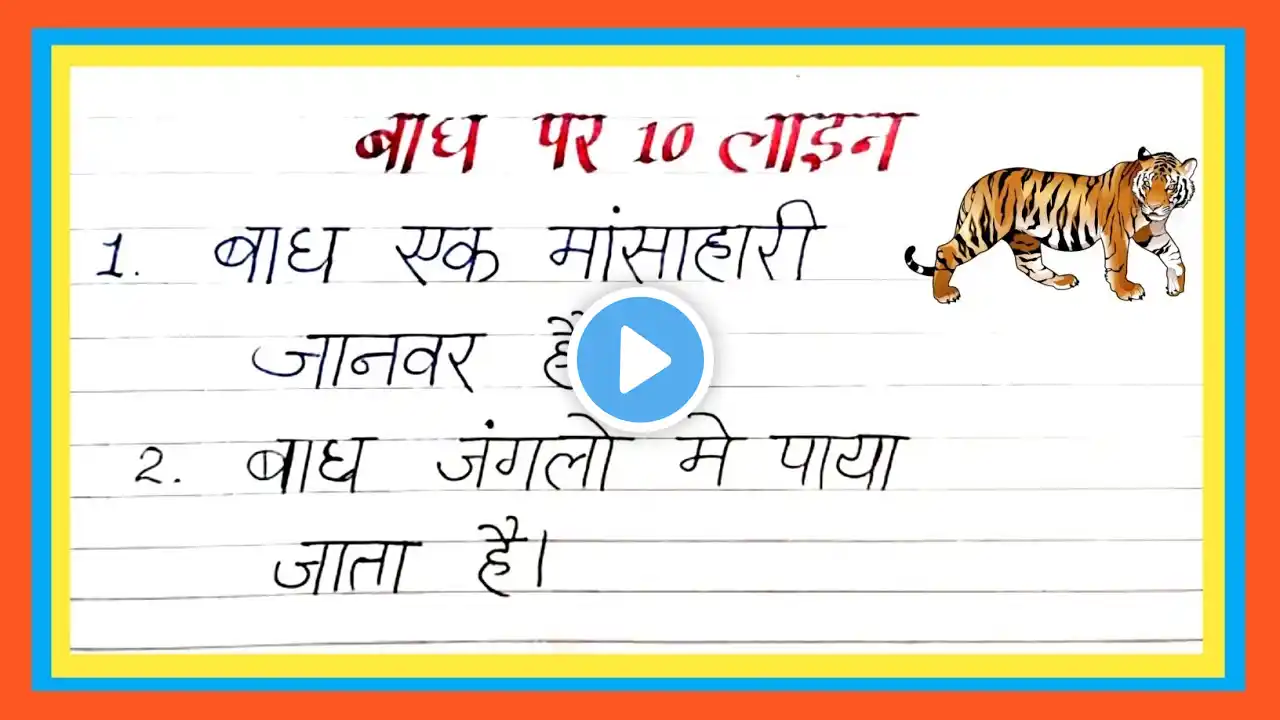 बाघ पर 10 लाइन
1. बाघ एक मांसाहारी
जानवर है
2. बाघ जंगलो मे पाया
जाता है।